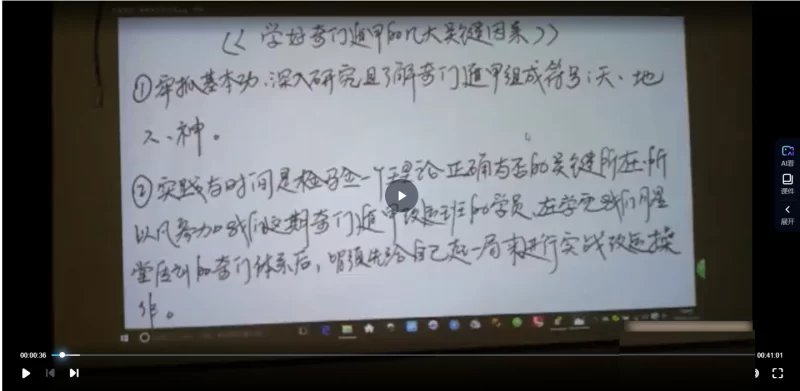 《学好奇门遁甲的几大关键因素》
①牢抓基本功、深入研究且了解奇门遁甲组成符号：天、地
人、神。
②实践与时间是检验一个理论正确与否的关键所在，所
以凡参加我们这期奇门遁甲改运班的学员，在学完我们
的奇门体系后，皆须先给自己起一局来进行实战改运操
作。
AI看
课件
展开
00:00:36
00:41:01